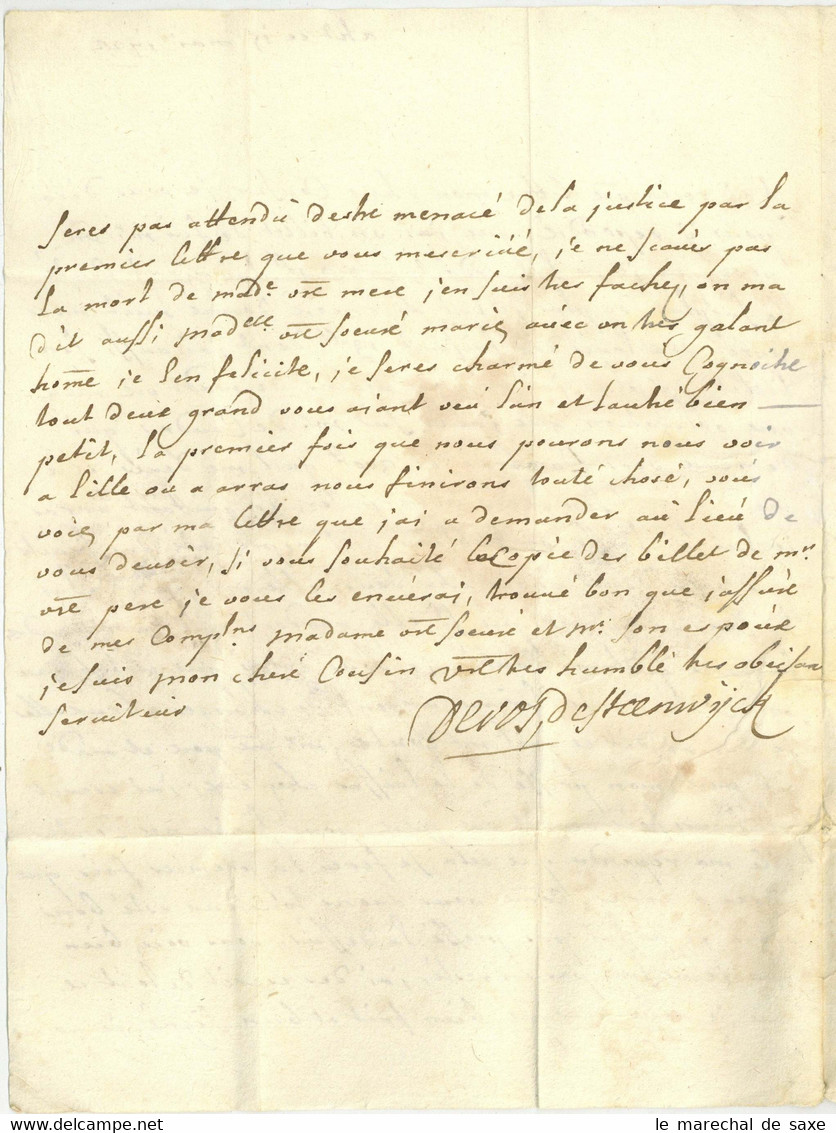 seres pas attendü destre menacé de la justice par la
premier lettre que vous mescrivé, je ne scavés pas
la mort de mad.e vre mere j'en suis tres fachez, on ma
dit aussi mad.elle vre soeuré mariez avéc un tres galant
home je len felicite, je seres charmé de vous Cognoitre
tout deux grand vous aiant veü lun et lautré bien
petit, la premier fois que nous pourons nous voir
a lille ou a arras nous finirons touté chosé, voús
voiez par ma lettre que jai a demander aú lieú de
vous devoir, si vous souhaité le Copie des billet de mr.
vre pere je vous les enverai, trouvé bon que j'assuré
de mes Complns. madame vre soeuré et mr. son espoúx
je suis mon cheré Cousin vre tres humblé tres obeisan
serviteur
Devos, de steenwijck
www.delcampe.net
le marechal de saxe